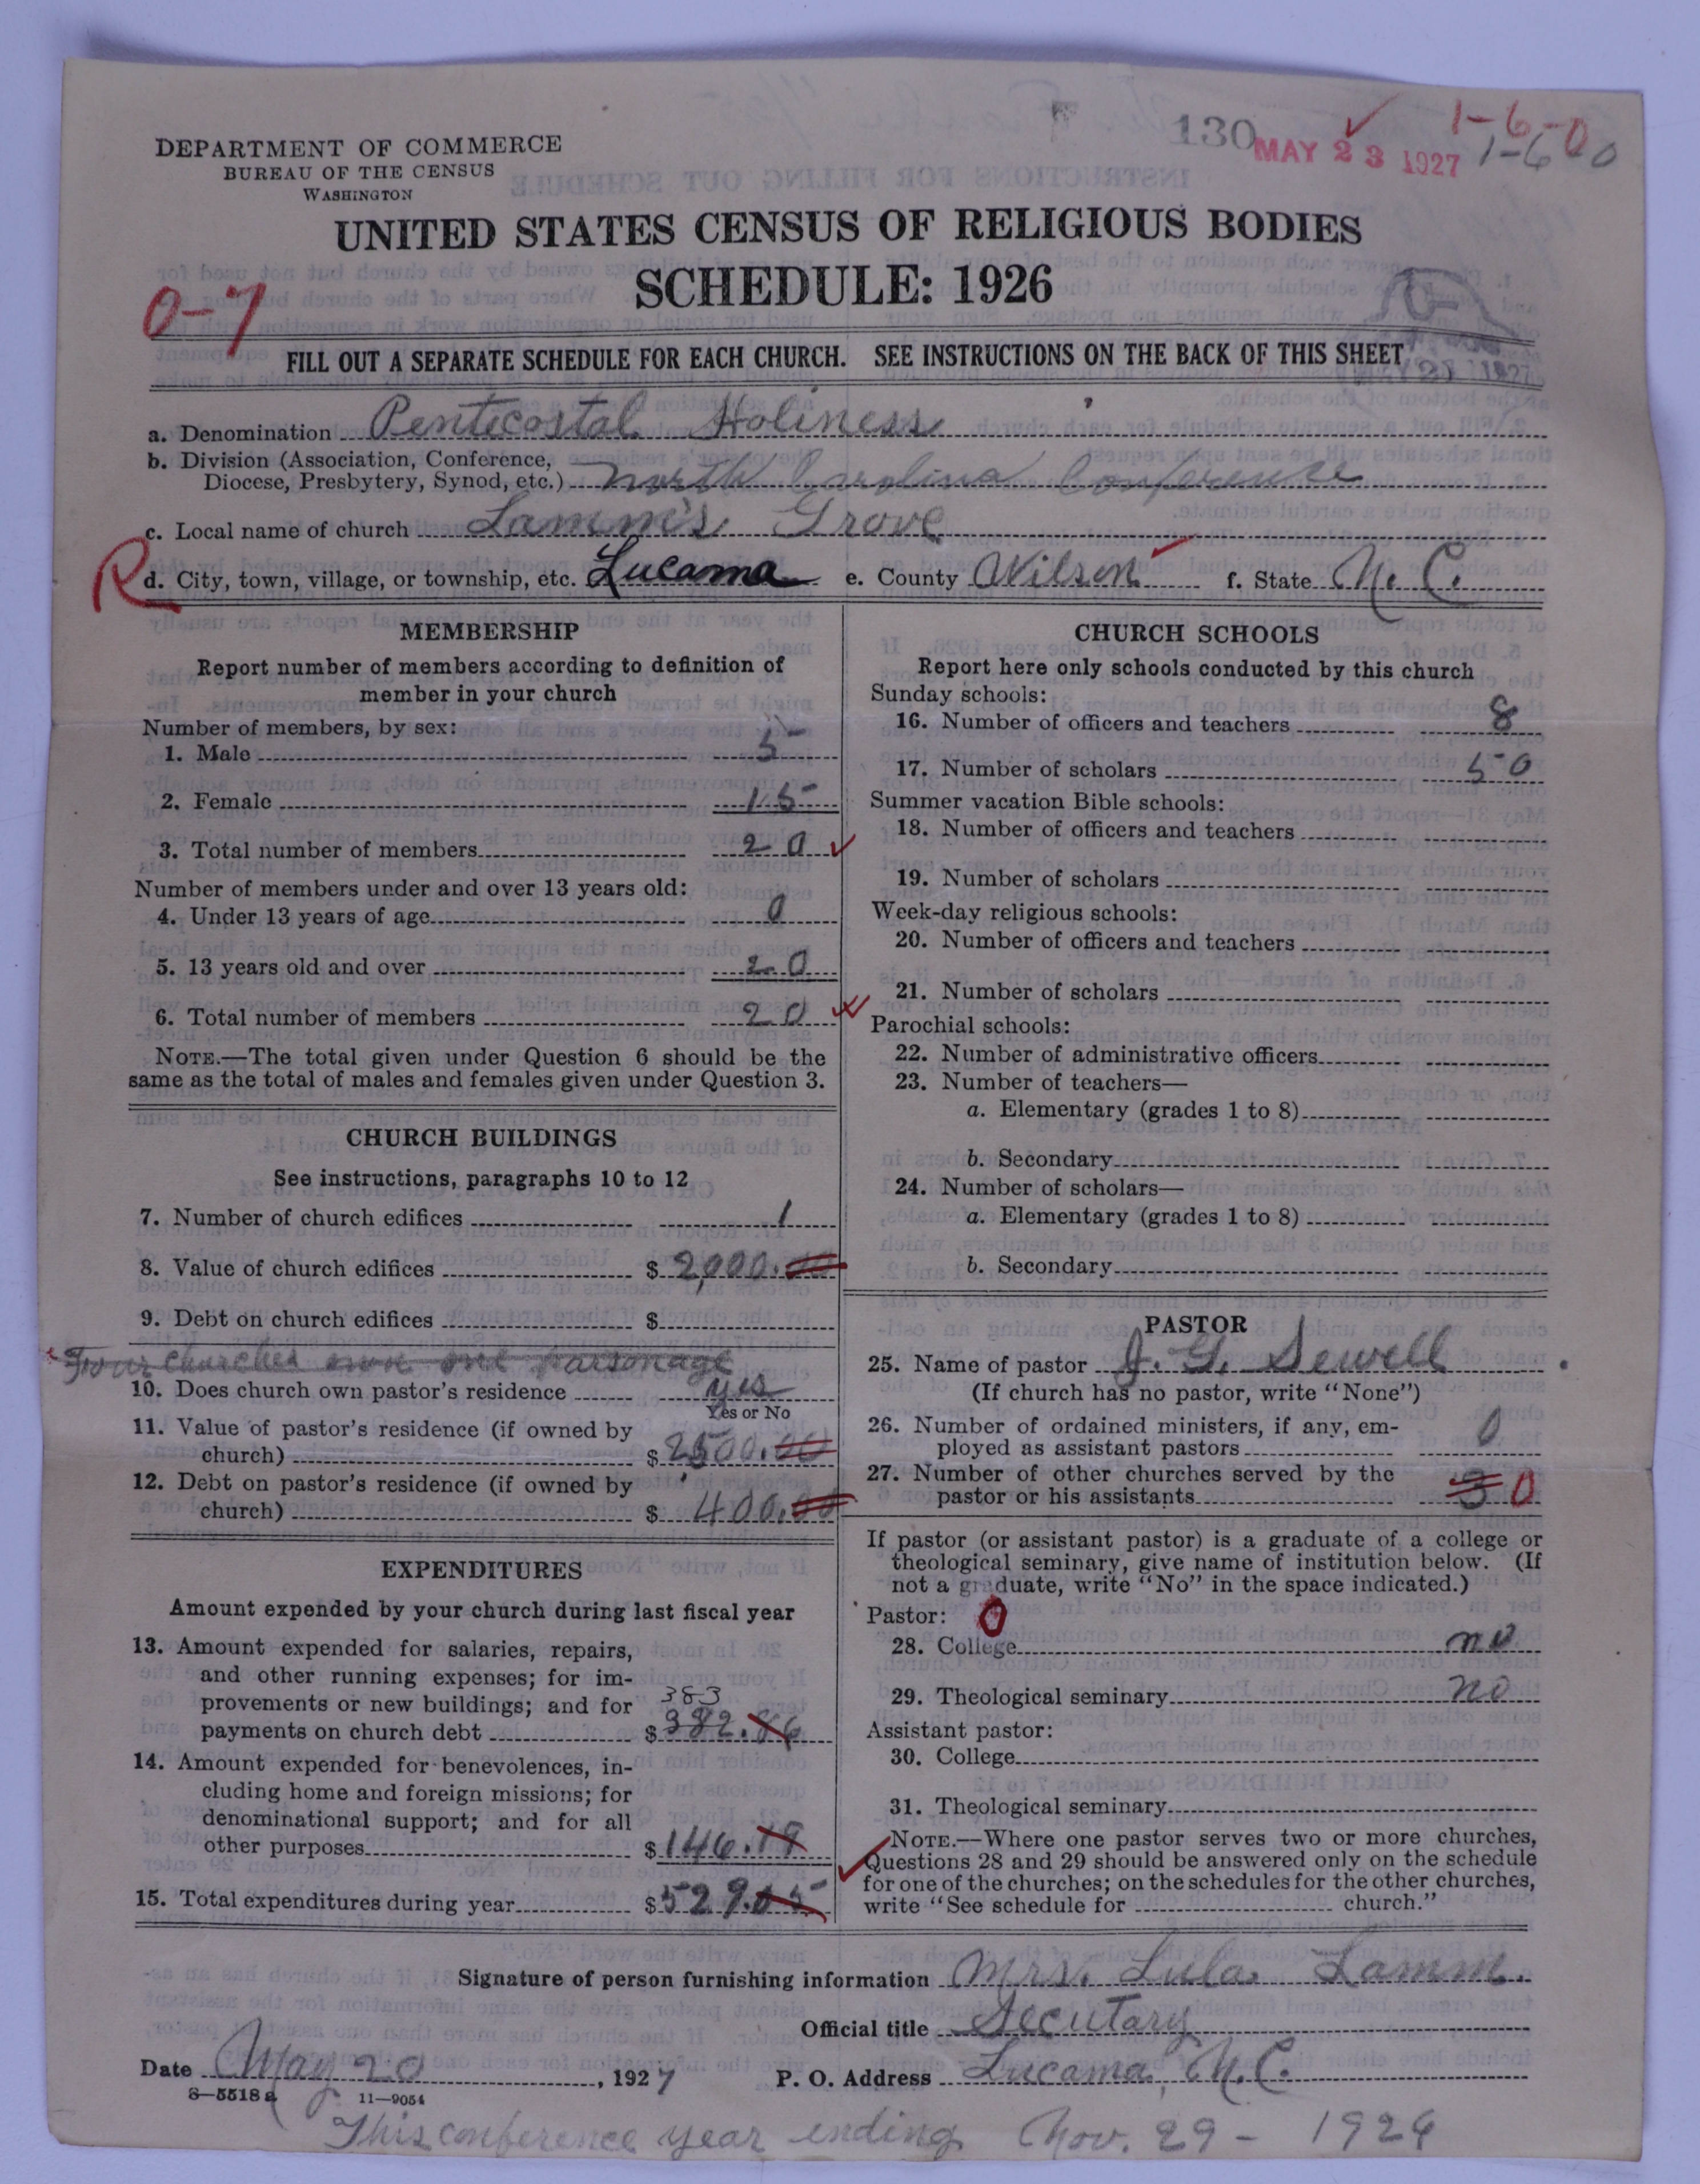 130 MAY 23 1927 1-6-0
1-6-0
DEPARTMENT OF COMMERCE
BUREAU OF THE CENSUS
WASHINGTON
UNITED STATES CENSUS OF RELIGIOUS BODIES
SCHEDULE: 1926
0-7
FILL OUT A SEPARATE SCHEDULE FOR EACH CHURCH. SEE INSTRUCTIONS ON THE BACK OF THIS SHEET
a. Denomination Pentecostal Holiness
b. Division (Association, Conference,
Diocese, Presbytery, Synod, etc.) North Carolina Conference
c. Local name of church Lamm's Grove
R d. City, town, village, or township, etc. Lucama e. County Wilson f. State N. C.
MEMBERSHIP
Report number of members according to definition of
member in your church
Number of members, by sex:
1. Male 5
2. Female 15
3. Total number of members 20
Number of members under and over 13 years old:
4. Under 13 years of age 0
5. 13 years old and over 20
6. Total number of members 20
NOTE.—The total given under Question 6 should be the
same as the total of males and females given under Question 3.
CHURCH BUILDINGS
See instructions, paragraphs 10 to 12
7. Number of church edifices 1
8. Value of church edifices $ 2,000.00
9. Debt on church edifices $
Four churches own one parsonage
10. Does church own pastor's residence yes
Yes or No
11. Value of pastor's residence (if owned by
church) $ 2500.00
12. Debt on pastor's residence (if owned by
church) $ 400.00
EXPENDITURES
Amount expended by your church during last fiscal year
13. Amount expended for salaries, repairs,
and other running expenses; for im-
provements or new buildings; and for 383
payments on church debt $ 382.86
14. Amount expended for benevolences, in-
cluding home and foreign missions; for
denominational support; and for all
other purposes $ 146.19
15. Total expenditures during year $ 529.05
CHURCH SCHOOLS
Report here only schools conducted by this church
Sunday schools:
16. Number of officers and teachers 8
17. Number of scholars 50
Summer vacation Bible schools:
18. Number of officers and teachers
19. Number of scholars
Week-day religious schools:
20. Number of officers and teachers
21. Number of scholars
Parochial schools:
22. Number of administrative officers
23. Number of teachers—
a. Elementary (grades 1 to 8)
b. Secondary
24. Number of scholars—
a. Elementary (grades 1 to 8)
b. Secondary
PASTOR
25. Name of pastor J. G. Sewell
(If church has no pastor, write "None")
26. Number of ordained ministers, if any, em-
ployed as assistant pastors 0
27. Number of other churches served by the
pastor or his assistants 3 0
If pastor (or assistant pastor) is a graduate of a college or
theological seminary, give name of institution below. (If
not a graduate, write "No" in the space indicated.)
Pastor: 0
28. College no
29. Theological seminary no
Assistant pastor:
30. College
31. Theological seminary
NOTE.—Where one pastor serves two or more churches,
Questions 28 and 29 should be answered only on the schedule
for one of the churches; on the schedules for the other churches,
write "See schedule for church."
Signature of person furnishing information Mrs. Lula Lamm.
Official title Secutary
Date May 20, 1927 P. O. Address Lucama, N.C.
8-5518a 11-9054
This conference year ending Nov. 29 - 1926